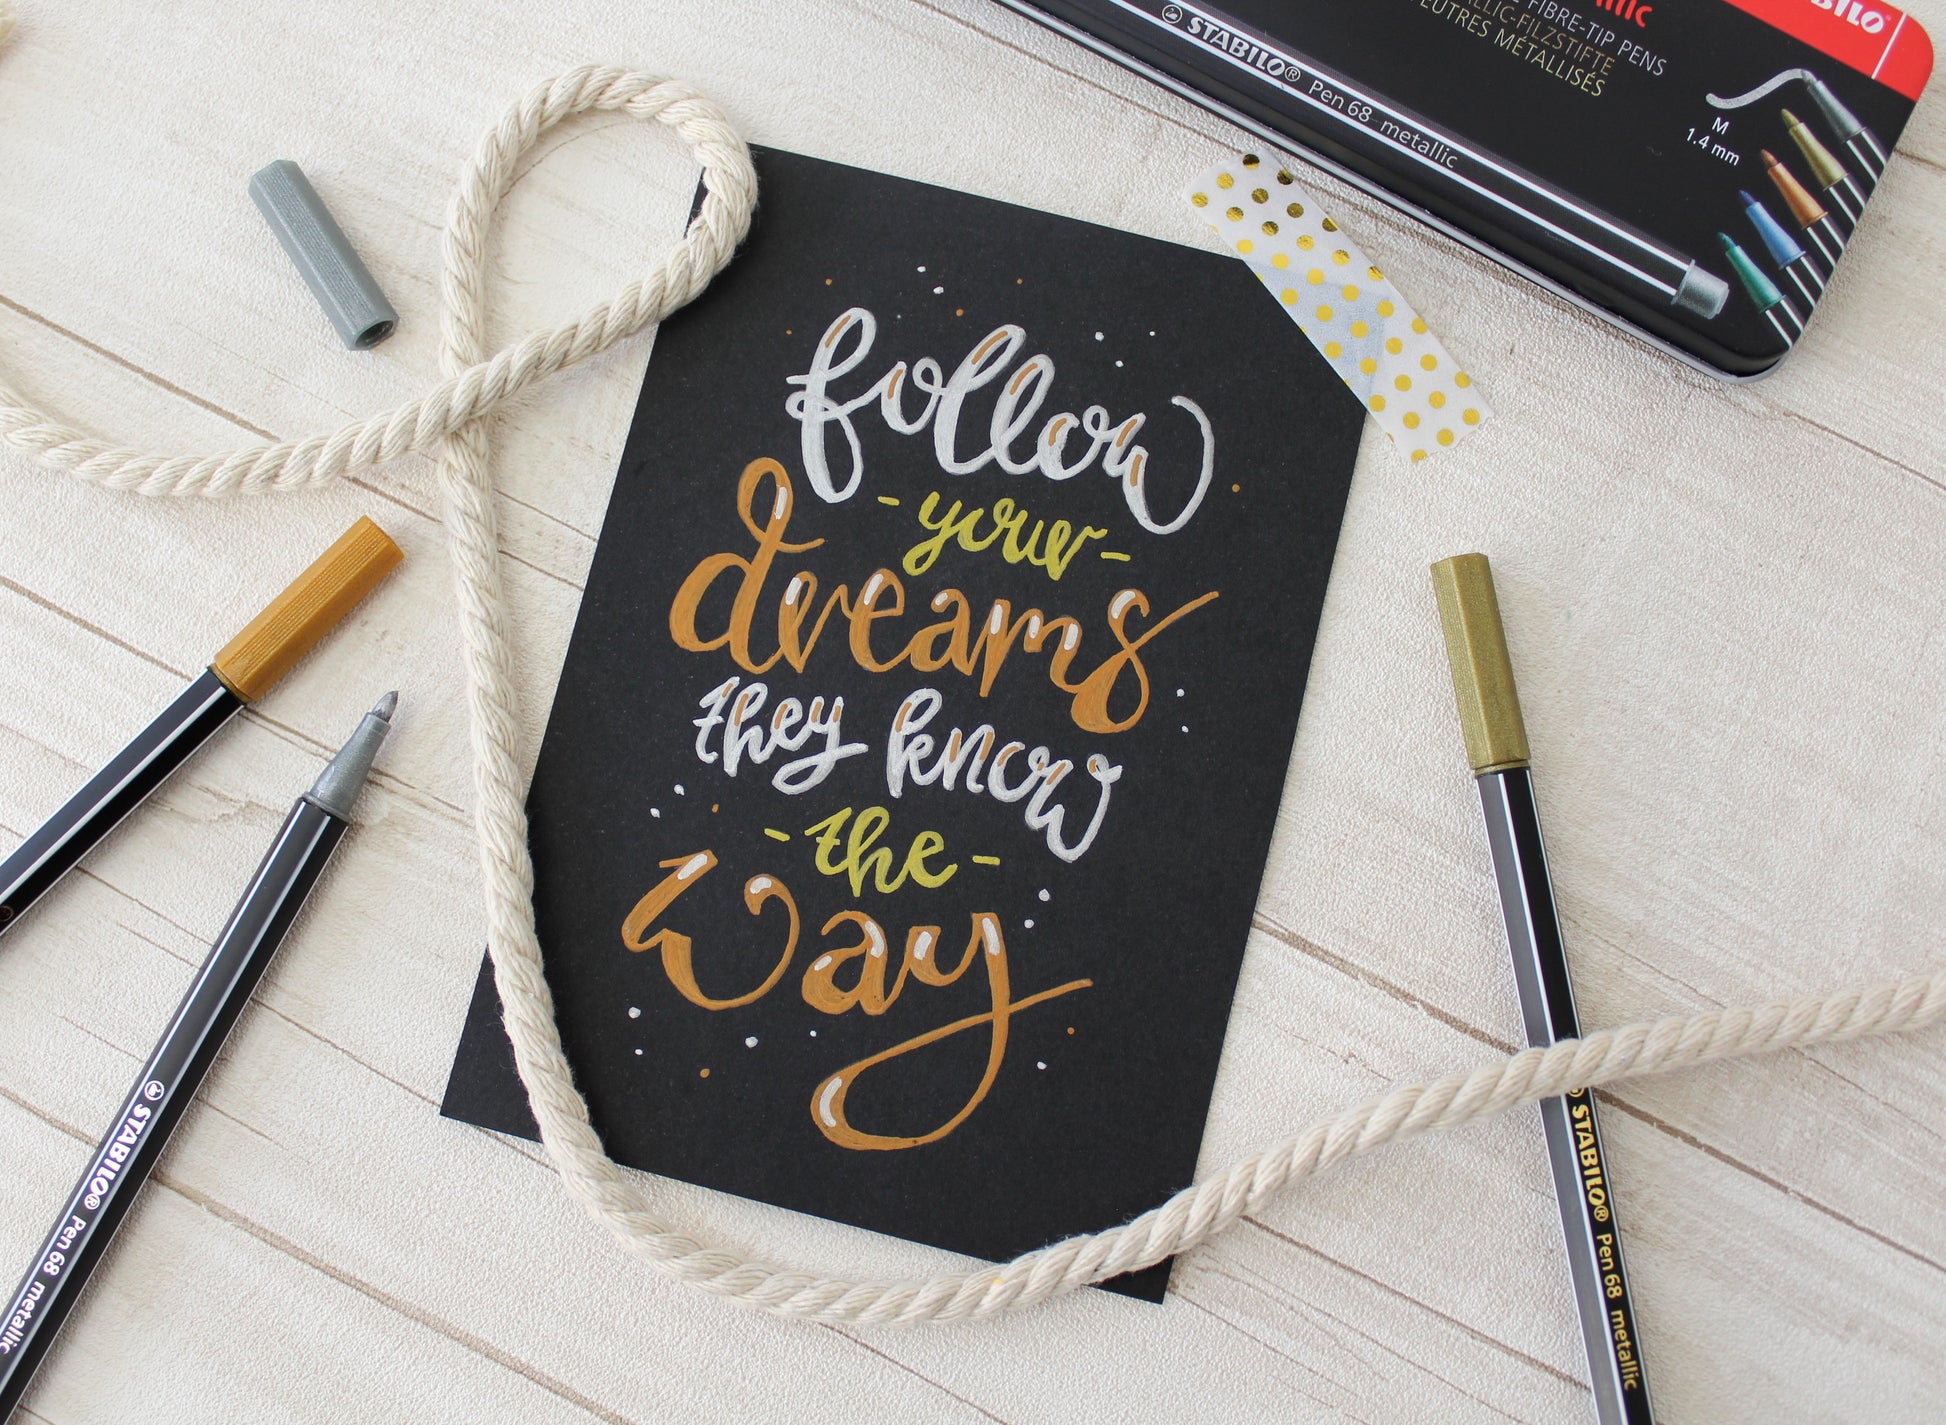 follow
- your -
dreams
they know
- the -
way
STABILO® Pen 68 metallic
FIBRE-TIP PENS
METALLISÉS
M
1.4 mm
STABILO® Pen 68 metallic
STABILO® Pen 68 metallic